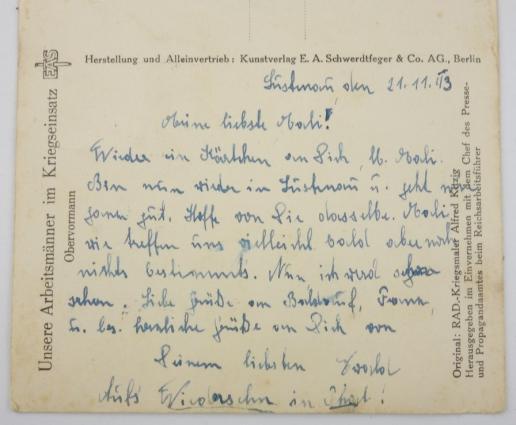 Herstellung und Alleinvertrieb: Kunstverlag E. A. Schwerdtfeger & Co. AG., Berlin
EAS
Unsere Arbeitsmänner im Kriegseinsatz
Obervormann
den 21.11.43
Meine liebste Mali!
Wieder ein Kärtchen an Dich, lb. Mali.
Bin nun wieder in u. geht mir
ganz gut. Hoffe von Dir dasselbe. Mali,
wir treffen uns vielleicht bald aber noch
nichts bestimmtes. Nun ich werd schon
sehen. Liebe Grüße an
u. bes. herzliche Grüße an Dich von
Deinem liebsten Ewald
Aufs Wiedersehn in
Original: RAD.-Kriegsmaler Alfred Kitzig
Herausgegeben im Einvernehmen mit dem Chef des Presse-
und Propagandaamtes beim Reichsarbeitsführer